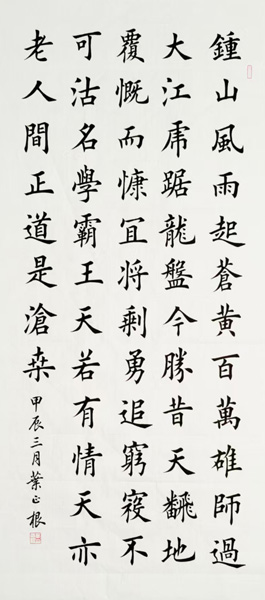 鍾山風雨起蒼黃百萬雄師過
大江虎踞龍盤今勝昔天飜地
覆慨而慷冝將剩勇追窮寇不
可沽名學霸王天若有情天亦
老人間正道是滄桒
甲辰三月葉正根